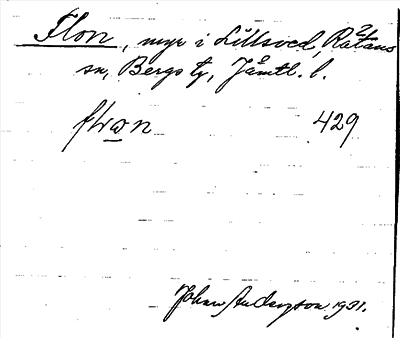 Flon, myr i Lillsved, Rätans
sn, Bergs tg, Jämtl. l.
429
Johan Anderzson 1931.